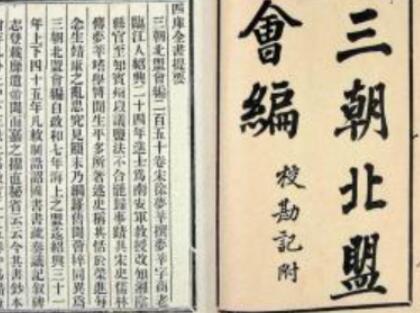 三朝北盟
會編
校勘記附
四庫全書提要
三朝北盟會編二百五十卷宋徐夢莘撰夢莘字商老
臨江人紹興二十四年進士為南安軍教授改知湘陰
縣官至知賓州以議鹽法不合罷歸事蹟具宋史儒林
傳夢莘嗜學博聞生平多所著述史稱其恬於榮進每
念生靖康之亂思究見顛末乃網羅舊聞薈粹同異為
三朝北盟會編自政和七年海上之盟迄紹興三十一
年上下四十五年凡敕制誥詔國書書疏奏議記敘碑
志登載靡遺帝聞而嘉之擢直秘省云云今其書鈔本